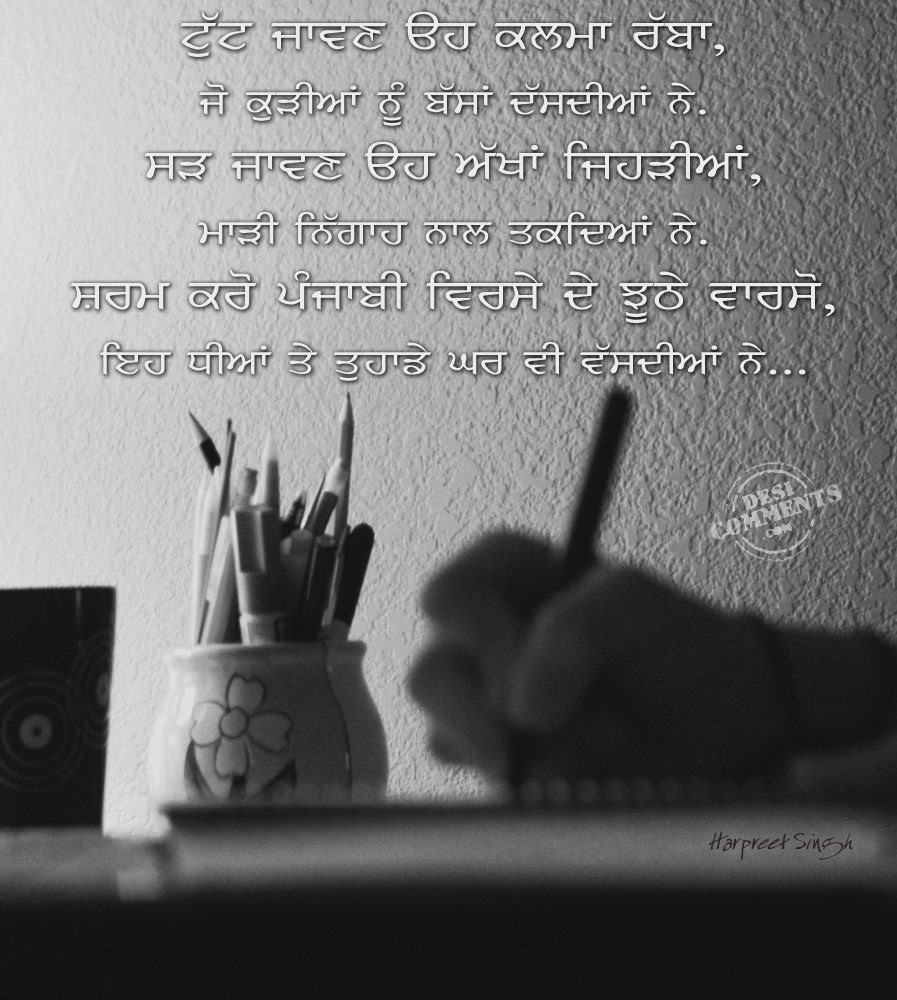 ਟੁੱਟ ਜਾਵਣ ੳਹ ਕਲਮਾ ਰੱਬਾ,
ਜੋ ਕੁੜੀਆਂ ਨੂੰ ਬੱਸਾਂ ਦੱਸਦੀਆਂ ਨੇ.
ਸੜ ਜਾਵਣ ੳਹ ਅੱਖਾਂ ਜਿਹੜੀਆਂ,
ਮਾੜੀ ਨਿੱਗਾਹ ਨਾਲ ਤਕਦਿਆਂ ਨੇ.
ਸ਼ਰਮ ਕਰੋ ਪੰਜਾਬੀ ਵਿਰਸੇ ਦੇ ਝੂਠੇ ਵਾਰਸੋ,
ਇਹ ਧੀਆਂ ਤੇ ਤੁਹਾਡੇ ਘਰ ਵੀ ਵੱਸਦੀਆਂ ਨੇ...
DESI
COMMENTS
.COM
Harpreet Singh